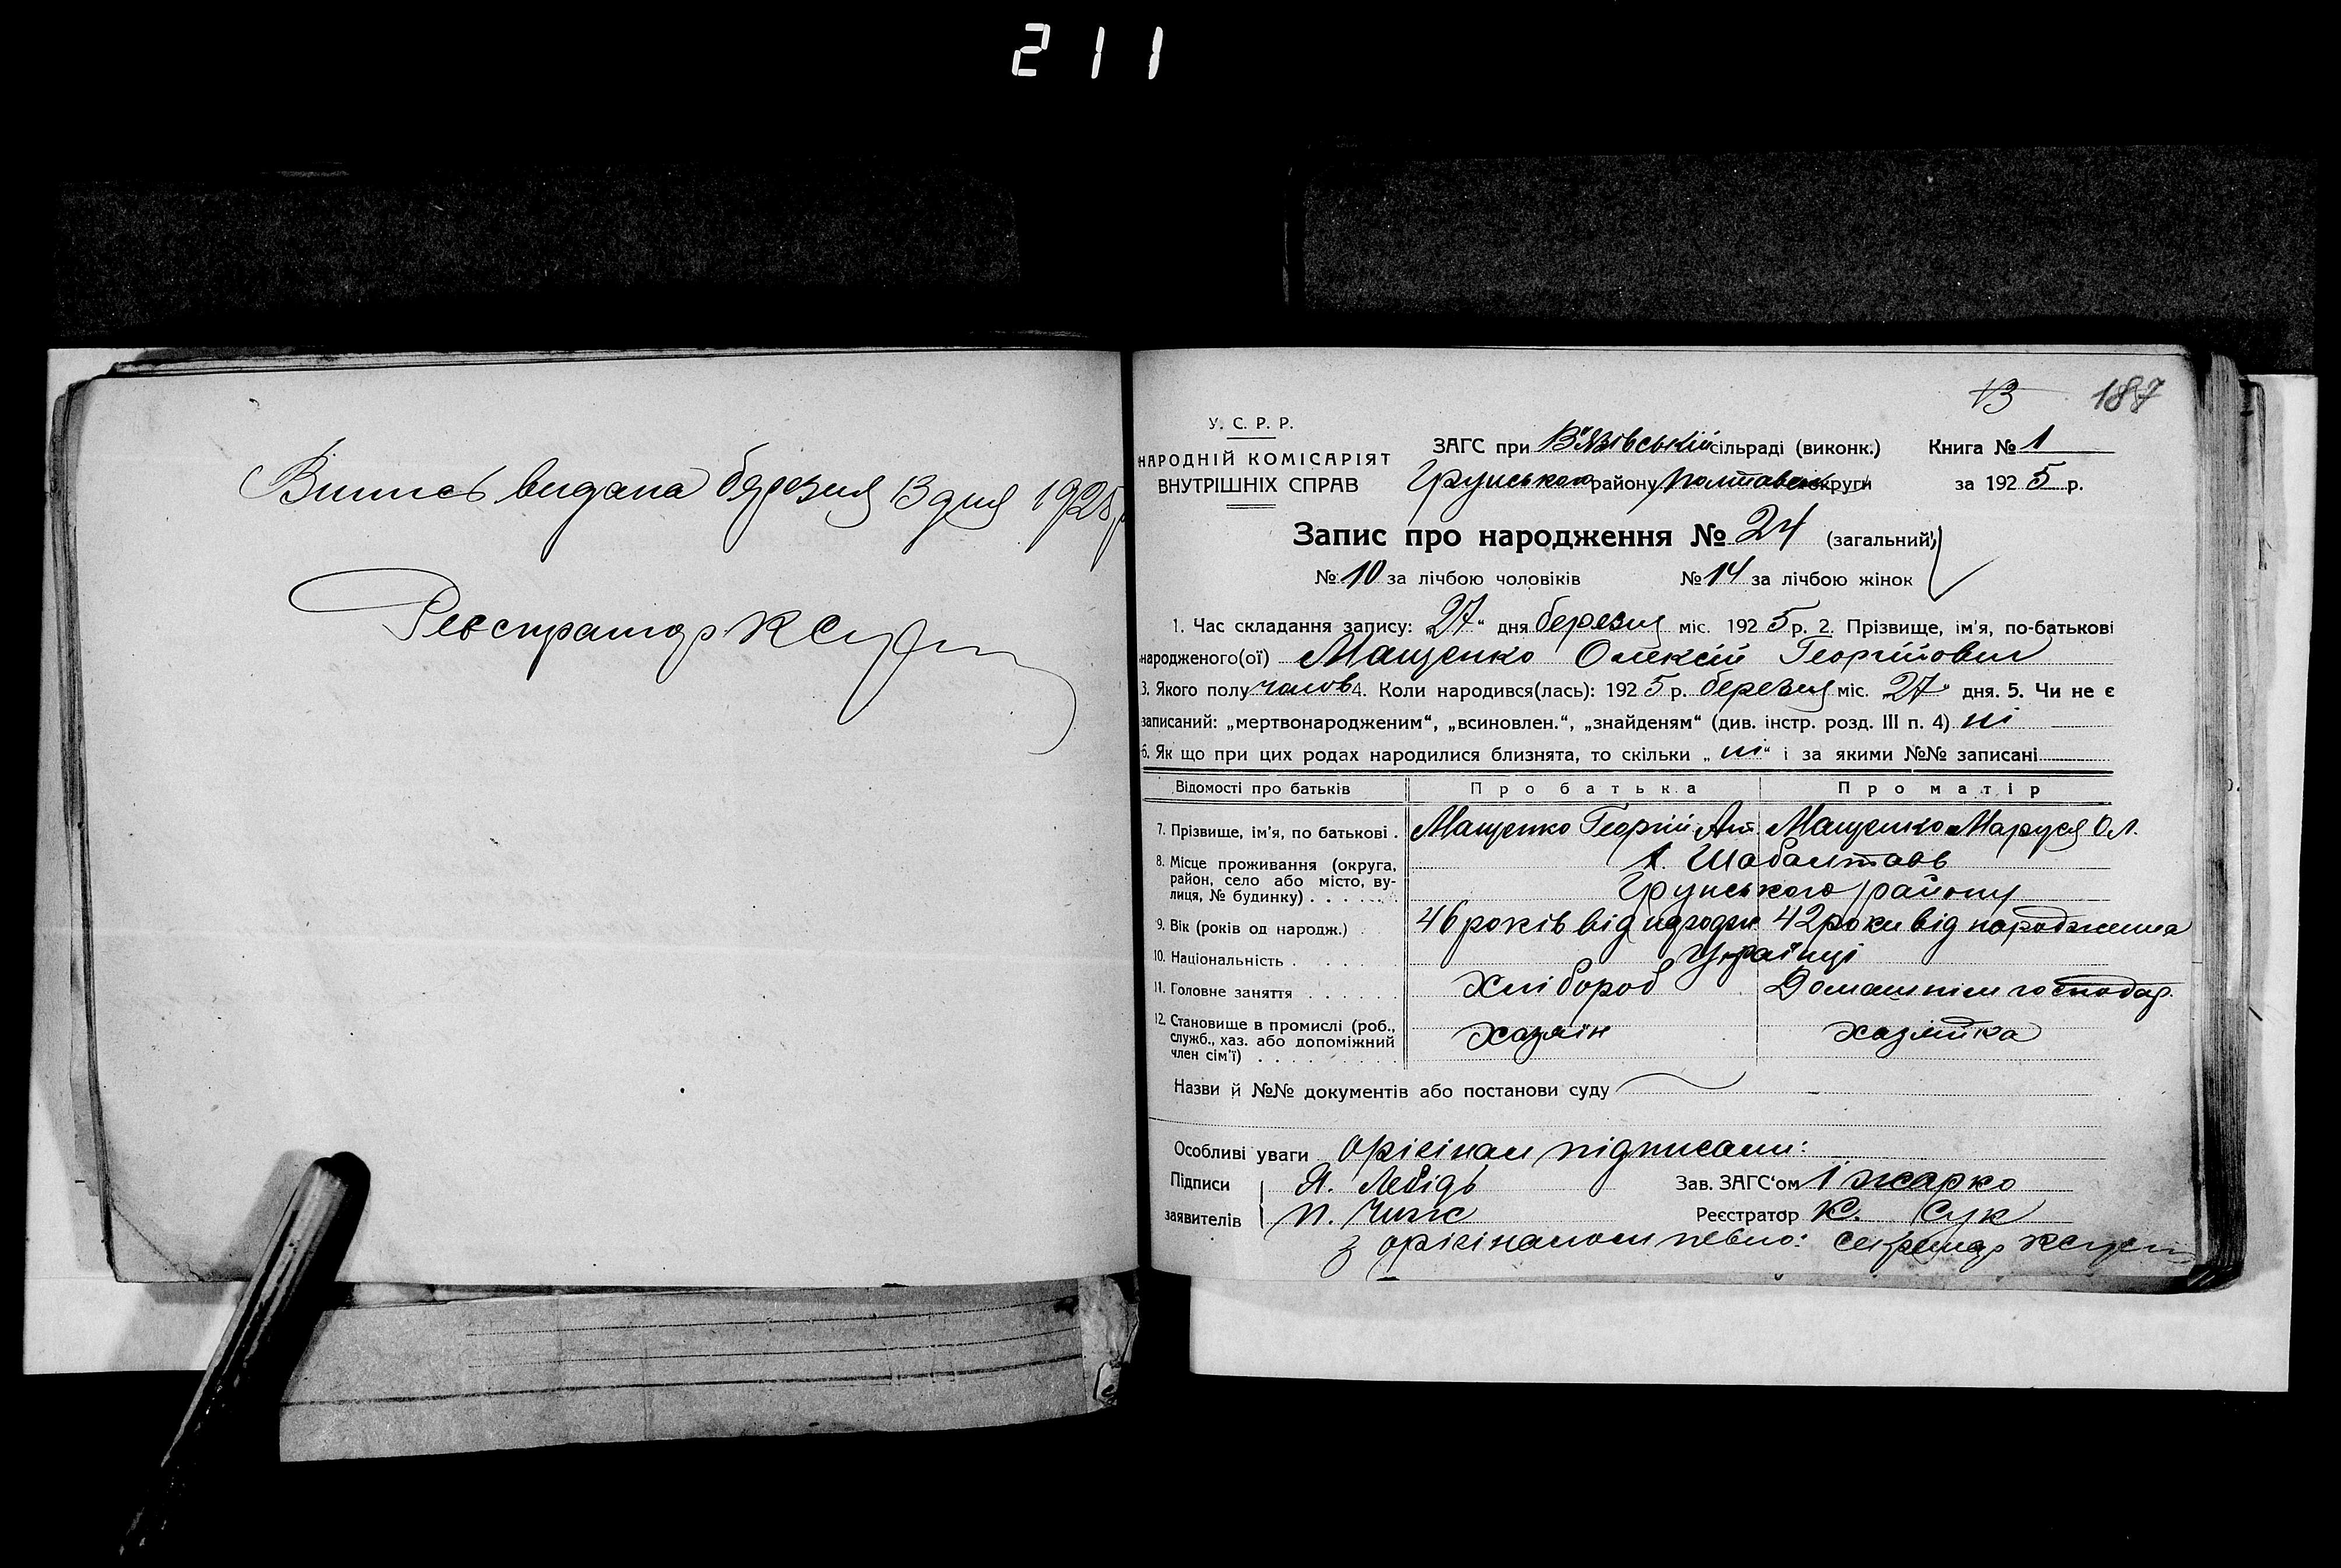 211
Випись видана березня 13 дня 1925 р
Реєстратор К Сук
13 187
У. С. Р. Р.
НАРОДНІЙ КОМІСАРІЯТ
ВНУТРІШНІХ СПРАВ
ЗАГС при В'язівській сільраді (виконк.) Книга № 1
Грунського району Полтавськ округи за 1925 р.
Запис про народження № 24 (загальний)
№ 10 за лічбою чоловіків № 14 за лічбою жінок
1. Час складання запису: „27“ дня березня міс. 1925 р. 2. Прізвище, ім'я, по-батькові
народженого(ої) Мащенко Олексій Георгійович
3. Якого полу чолов 4. Коли народився(лась): 1925 р. березня міс. 27“ дня. 5. Чи не є
записаний: „мертвонародженим“, „всиновлен.“, „знайденям“ (див. інстр. розд. III п. 4) ні
6. Як що при цих родах народилися близнята, то скільки „ ні “ і за якими №№ записані
Відомості про батьків Про батька Про матір
7. Прізвище, ім'я, по батькові . Мащенко Георгій Ант. Мащенко Маруся Ол.
8. Місце проживання (округа, район, село або місто, ву-лиця, № будинку) . . . . . . х. Шабалтаєв
Грунського району
9. Вік (років од народж.) . 46 років від народж 42 роки від народження
10. Національність . . . . . Українці
11. Головне заняття . . . . . . Хлібороб Домашнім господар.
12. Становище в промислі (роб., служб., хаз. або допоміжний член сім'ї) . . . . . . . . хазяін хазяйка
Назви й №№ документів або постанови суду
Особливі уваги орігінал підписали:
Підписи Я. Лебідь Зав. ЗАГС'ом І Жарко
заявителів П. Чиж Реєстратор К. Сук
з орігіналом певно: Секретар К Сук